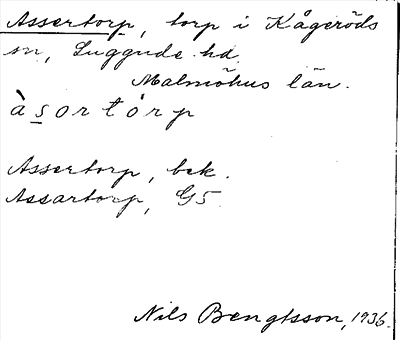 Assertorp, torp i Kågeröds
sn, Luggude hd.
Malmöhus län.
àsortòrp
Assertorp, bek.
Assartorp, G5.
Nils Bengtsson, 1936.